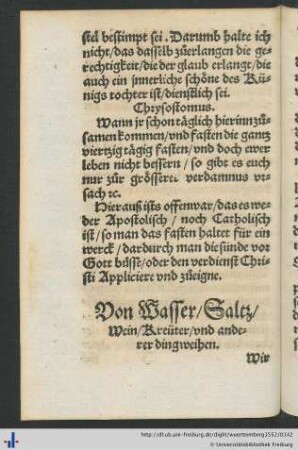 stel bestimpt sei. Darumb halte ich
nicht/das dasselb zůerlangen die ge-
rechtigkeit/die der glaub erlangt/die
auch ein innerliche schöne des Kü-
nigs tochter ist/dienstlich sei.
Chrysostomus.
Wann jr schon täglich hierinn zů-
samen kommen/vnd fasten die gantz
viertzig tägig fasten/vnd doch ewer
leben nicht bessern/so gibt es euch
nur zůr grösserer verdamnus vr-
sach ꝛc.
Hierauß ists offenwar/das es we-
der Apostolisch/noch Catholisch
ist/so man das fasten haltet für ein
werck/dardurch man die sünde vor
Gott büsse/oder den verdienst Chri-
sti Appliciere vnd zůeigne.
Von Wasser/Saltz/
Wein/Kreüter/vnd ande-
rer ding weihen.
Wir
http://dl.ub.uni-freiburg.de/diglit/wuerttemberg1552/0342
© Universitätsbibliothek Freiburg